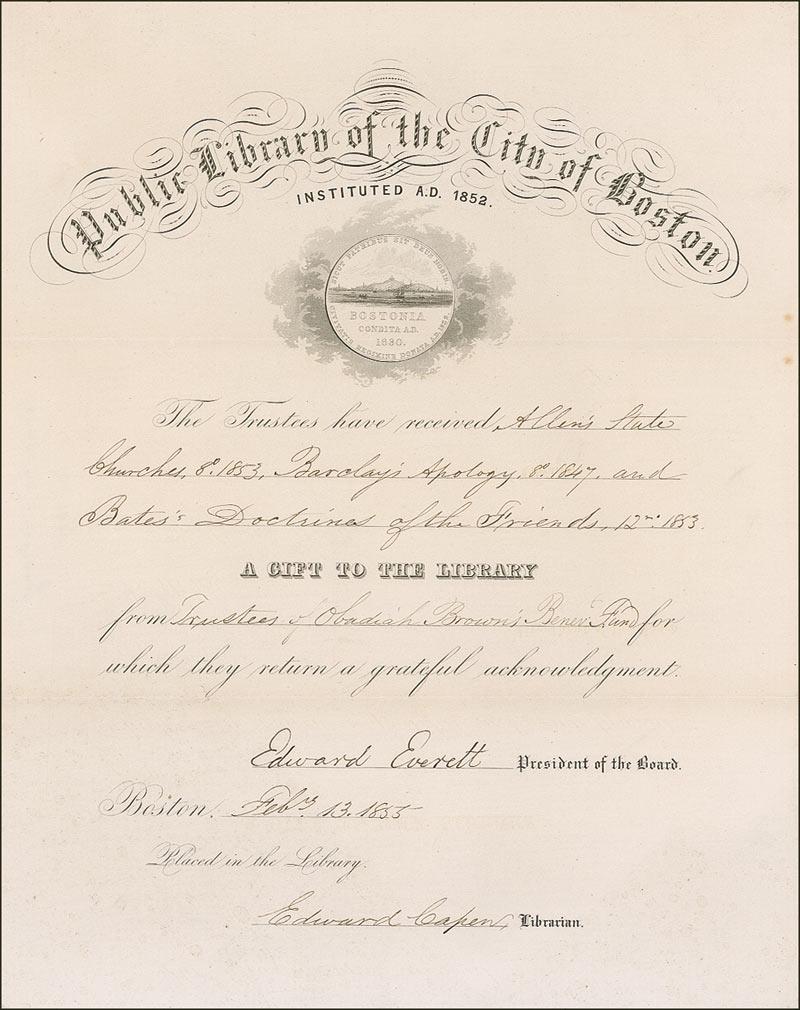 Public Library of the City of Boston.
INSTITUTED A.D. 1852.
SICUT PATRIBUS SIT DEUS NOBIS
BOSTONIA
CONDITA A.D.
1630.
CIVITATIS REGIMINE DONATA A.D. 1822.
The Trustees have received Allen's State
Churches, 8º. 1853, Barclay's Apology, 8º. 1847, and
Bates's Doctrines of the Friends, 12mo. 1853.
A GIFT TO THE LIBRARY
from Trustees of Obadiah Brown's Benev. Fund for
which they return a grateful acknowledgment.
Edward Everett President of the Board.
Boston. Feby. 13. 1855
Placed in the Library.
Edward Capen, Librarian.